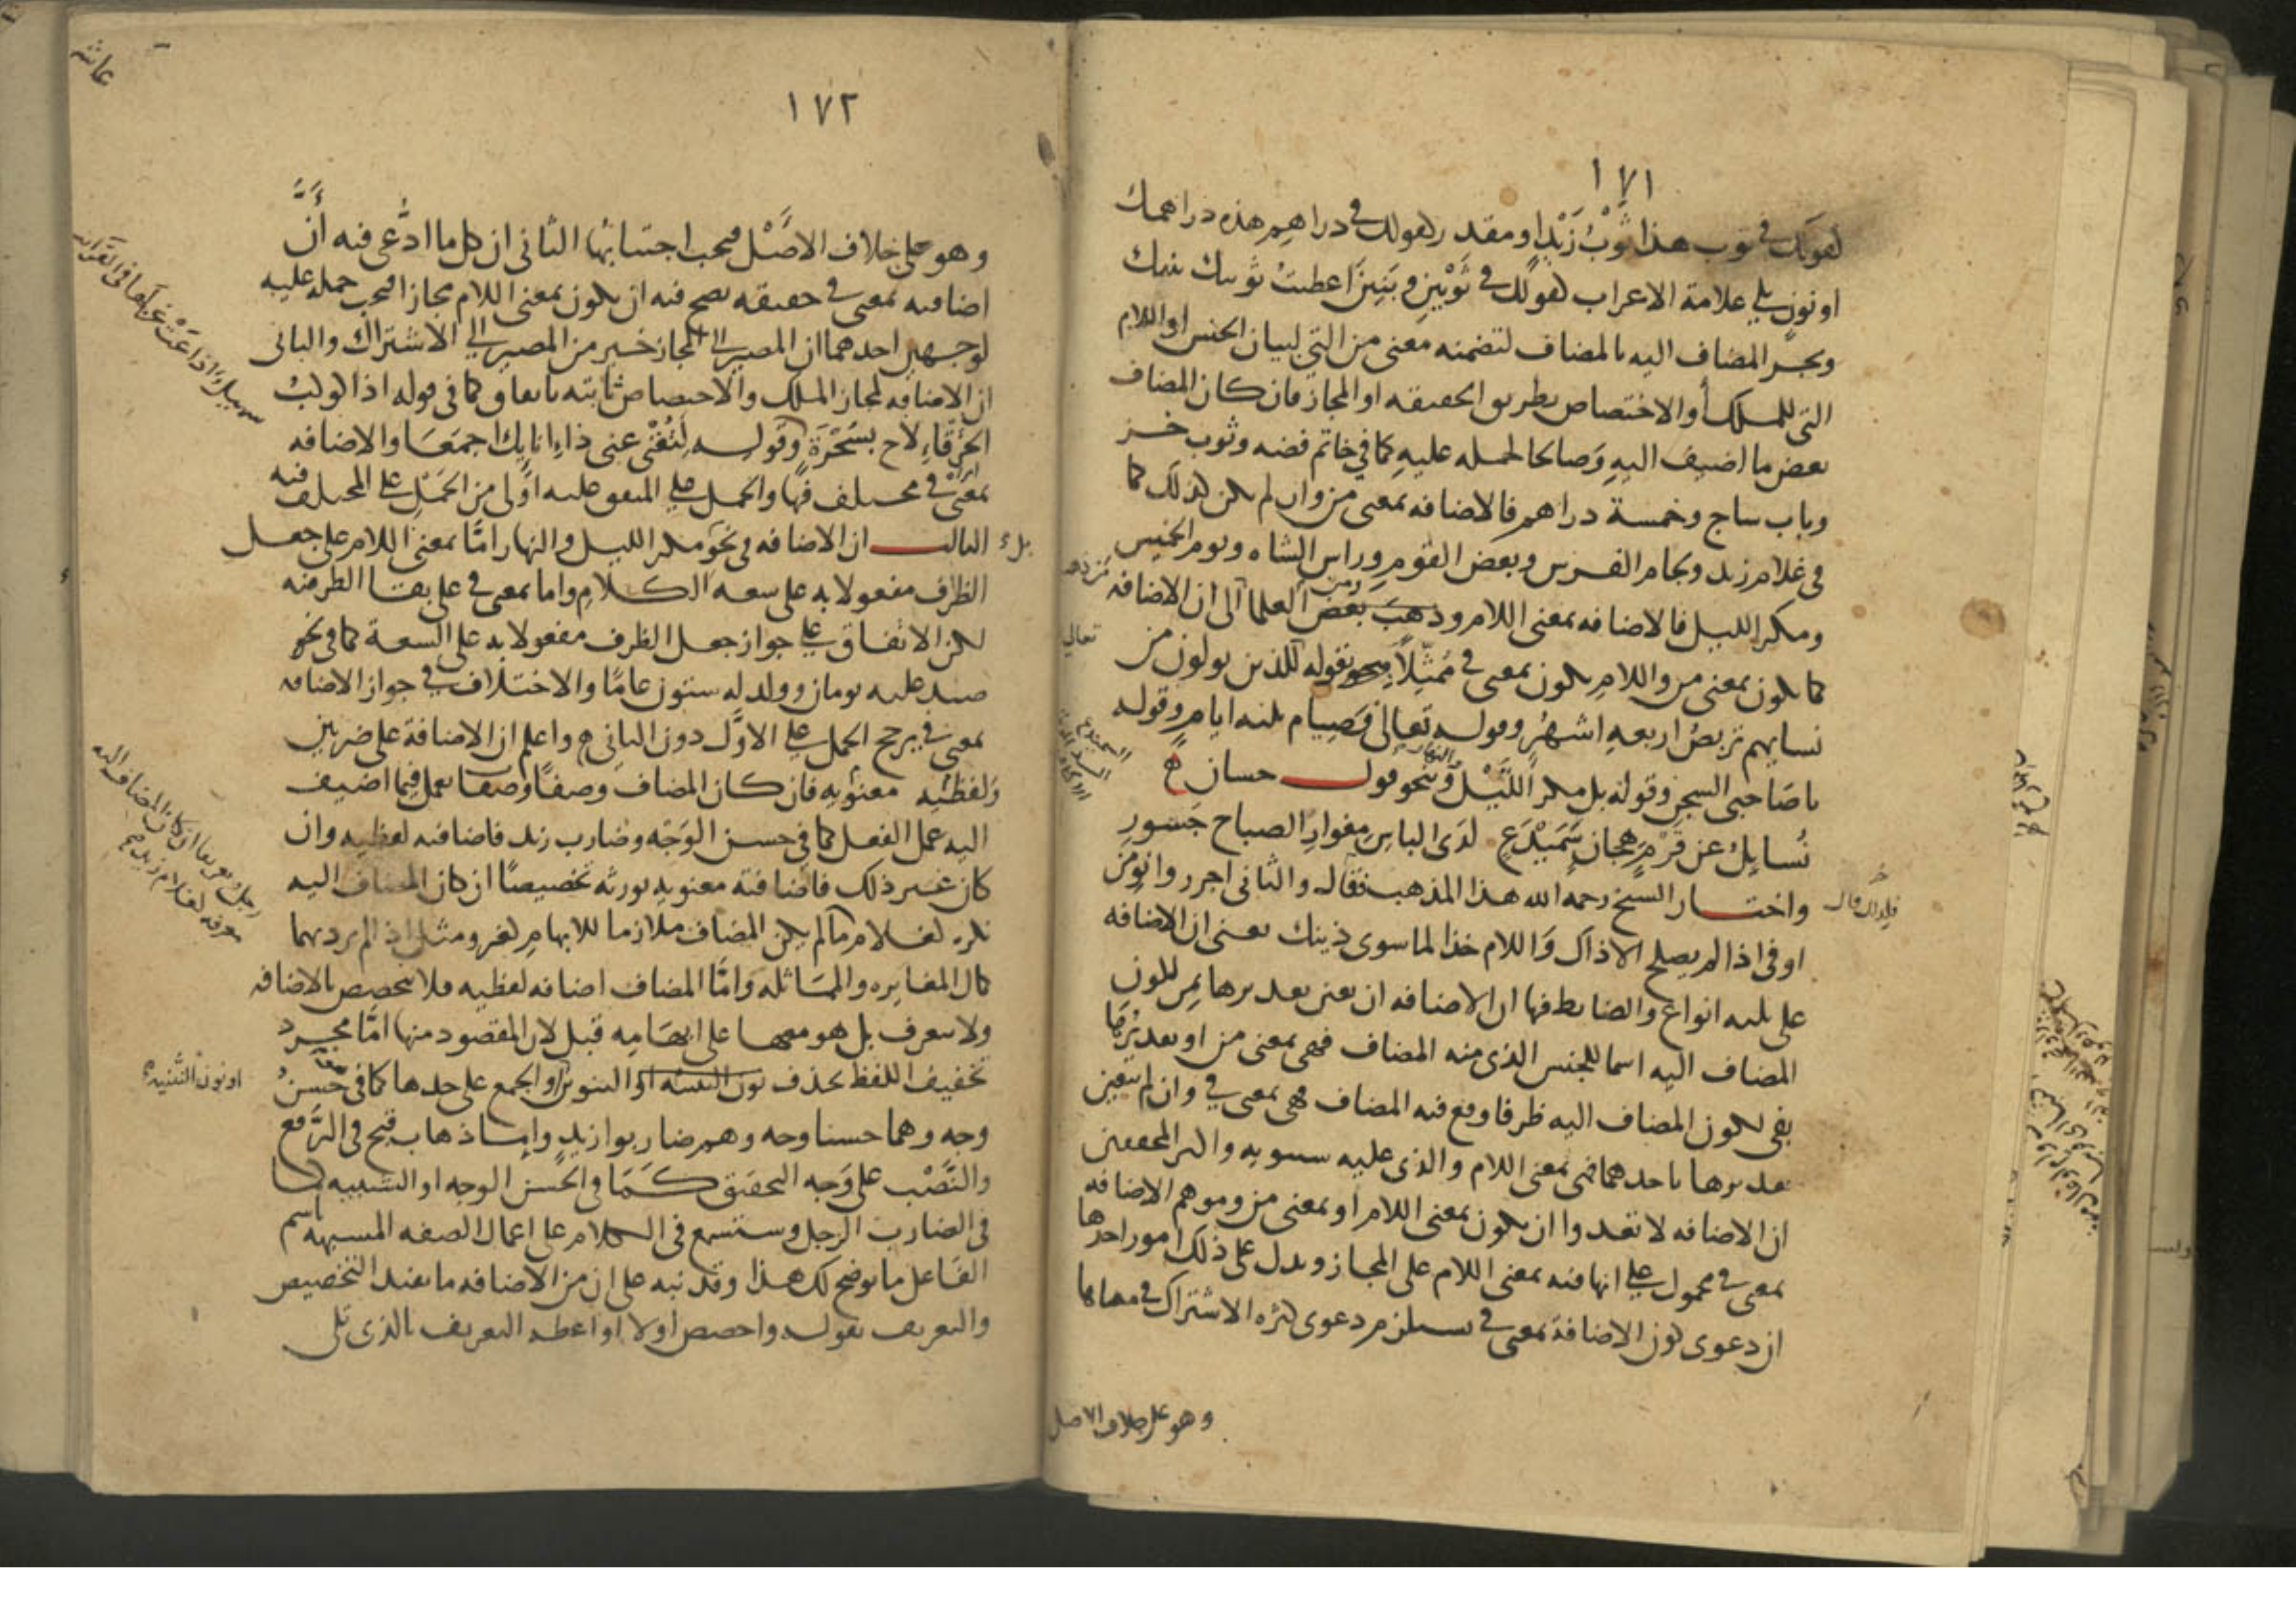 ١٧١
كقولك في ثوب هذا ثَوْبُ زَيْدٍ او مقدر كقولك في دراهِم هذه دراهمك
او نون تلي علامة الاعراب كقولك في ثَوْبَيْنِ وبَنِينَ اعطيتُ ثوبيك بنيك
ويجر المضاف اليه بالمضاف لتضمنه معنى من التي لبيان الجنس او اللام
التي للملك أو الاختصاص بطريق الحقيقه او المجاز فان كان المضاف
بعض ما اضيف اليه وَصالحا لحمله عليهِ كما في خاتم فضه وثوب خز
وباب ساج وخمسة دراهم فالاضافه بمعنى من وان لم يكن كذلك كما
في غلام زيد ولجام الفرس وبعض القوم وراس الشاه ويوم الخميس
ومكر الليل فالاضافه بمعنى اللام وذهبَ بَعضُ العلما الى ان الاضافه
كما تكون بمعنى من واللام تكون بمعنى في مُمَثِّلاً بنحو قوله للذين يولون من
تعالى
نسايهم تربصُ اربعهِ اشهُر وقوله تعالى فصِيام ثلثه ايامٍ وقوله
يا صَاحبي السجن وقوله بل مكر اللَّيْل والنهار ونحو قول حسان
نُسايِلُ عن قَرْمٍ هجان سَمَيْدَعٍ لدَى الباس مغوارِ الصباح جَسُورِ
واختار الشيخ رحمه الله هذا المذهب فقال والثاني اجرر وانوِ من
فلذلك قال
او في اذا لم يصلح الا ذاك وَاللام خذا لما سوى ذينك يعنى ان الاضافه
على ثلثه انواع والضابط فيها ان الاضافه ان تعين تقديرها بمن لكون
المضاف اليه اسما للجنس الذي منه المضاف فهي بمعنى من او تقديرُها
بفي لكون المضاف اليه ظرفا وقع فيه المضاف فهي بمعنى في وان لم يتعين
تقديرها باحدهما فهي بمعنى اللام والذي عليه سيبويه واكثر المحققين
ان الاضافه لا تعدوا ان تكون بمعنى اللام او بمعنى من وموهم الاضافه
بمعنى في محمول على انها فيه بمعنى اللام على المجاز ويدل على ذلك امور احدها
ان دعوى كون الاضافة بمعنى في يستلزم دعوى كثره الاشتراك في معناها
وهو على خلاف الاصل
١٧٢
وهو على خلاف الاصْل فيجب اجتنابُها الثاني ان كل ما ادُّعي فيه أنَّ
اضافته بمعنى في حقيقه يصح فيه ان يكون بمعنى اللام مجازا فيجب حمله عليه
لوجهين احدهما ان المصير الى المجاز خير من المصير الى الاشتراك والثاني
ان الاضافه لمجاز الملك والاختصاص ثابته باتفاق كما في قوله اذا كوكبُ
الخَرْقاءِ لاح بسَحْرَةٍ وقوله لِتُغْنِ عني ذا انايك اجمعَا والاضافه
سهيلٌ اذاعَتْ غزلها في القرايب
بمعنى في مختلف فيها والحمل على المتفق عليه اولى من الحَمْلِ على المختلف فيه
الثالث ان الاضافه في نحو مكر الليل والنهار امَّا بمعنى اللام على جعل
الظرف مفعولا به على سعه الكلامِ واما بمعنى في على بقا الظرفيه
لكن الاتفاق على جواز جعل الظرف مفعولا به على السعة كما في نحو
صيد عليه يومان وولد له ستون عامًا والاختلاف في جواز الاضافه
بمعنى في يرجح الحمل على الاوَّل دون الثاني واعلم ان الاضافة على ضربين
وَلفظيه معنويه فان كان المضاف وصفًا يعمل فيما اضيف
اليه عمل الفعل كما في حسن الوَجْه وضارب زيد فاضافته لفظيه وان
كان غير ذلك فاضافته معنويه تورثه تخصيصًا ان كان المضاف اليه
رجل وتعريفا ان كان المضاف اليه
معرفه كغلام زيد
نكره كغلام ما لم يكن المضاف ملازما للابهامِ كغير ومثل اذ لم يرد بهما
كمال المغايره والمماثله وَامَّا المضاف اضافه لفظيه فلا يتخصص بالاضافه
ولا يتعرف بل هو معها على ابهَامِه قبل لان المقصود منها امَّا مجرد
تخفيف اللفظ بحذف التنوين او الجمع على حدها كما في حَسَنُ
او نون التثنيه
وجه وهما حسنا وجه وهم ضاربوا زيدٍ واما ذهاب قبح في الرَّفع
والنَّصْب على وَجه التحقيق كَمَا في الحَسن الوجه او التشبيه كما
في الضارب الرجل وستسمع في الكلام على اعمال الصفه المشبهه باسم
الفَاعل ما يوضح لك هذا وقد نبه على ان من الاضافه ما يفيد التخصيص
والتعريف بقوله واخصص اولا او اعطه التعريف بالذي تلى